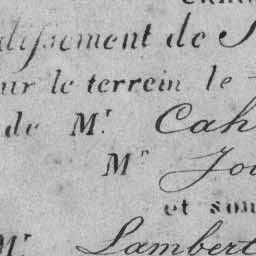 dissement de
ur le terrein le
de Mr. Cah
Mr Jou
et son
Mr. Lambert